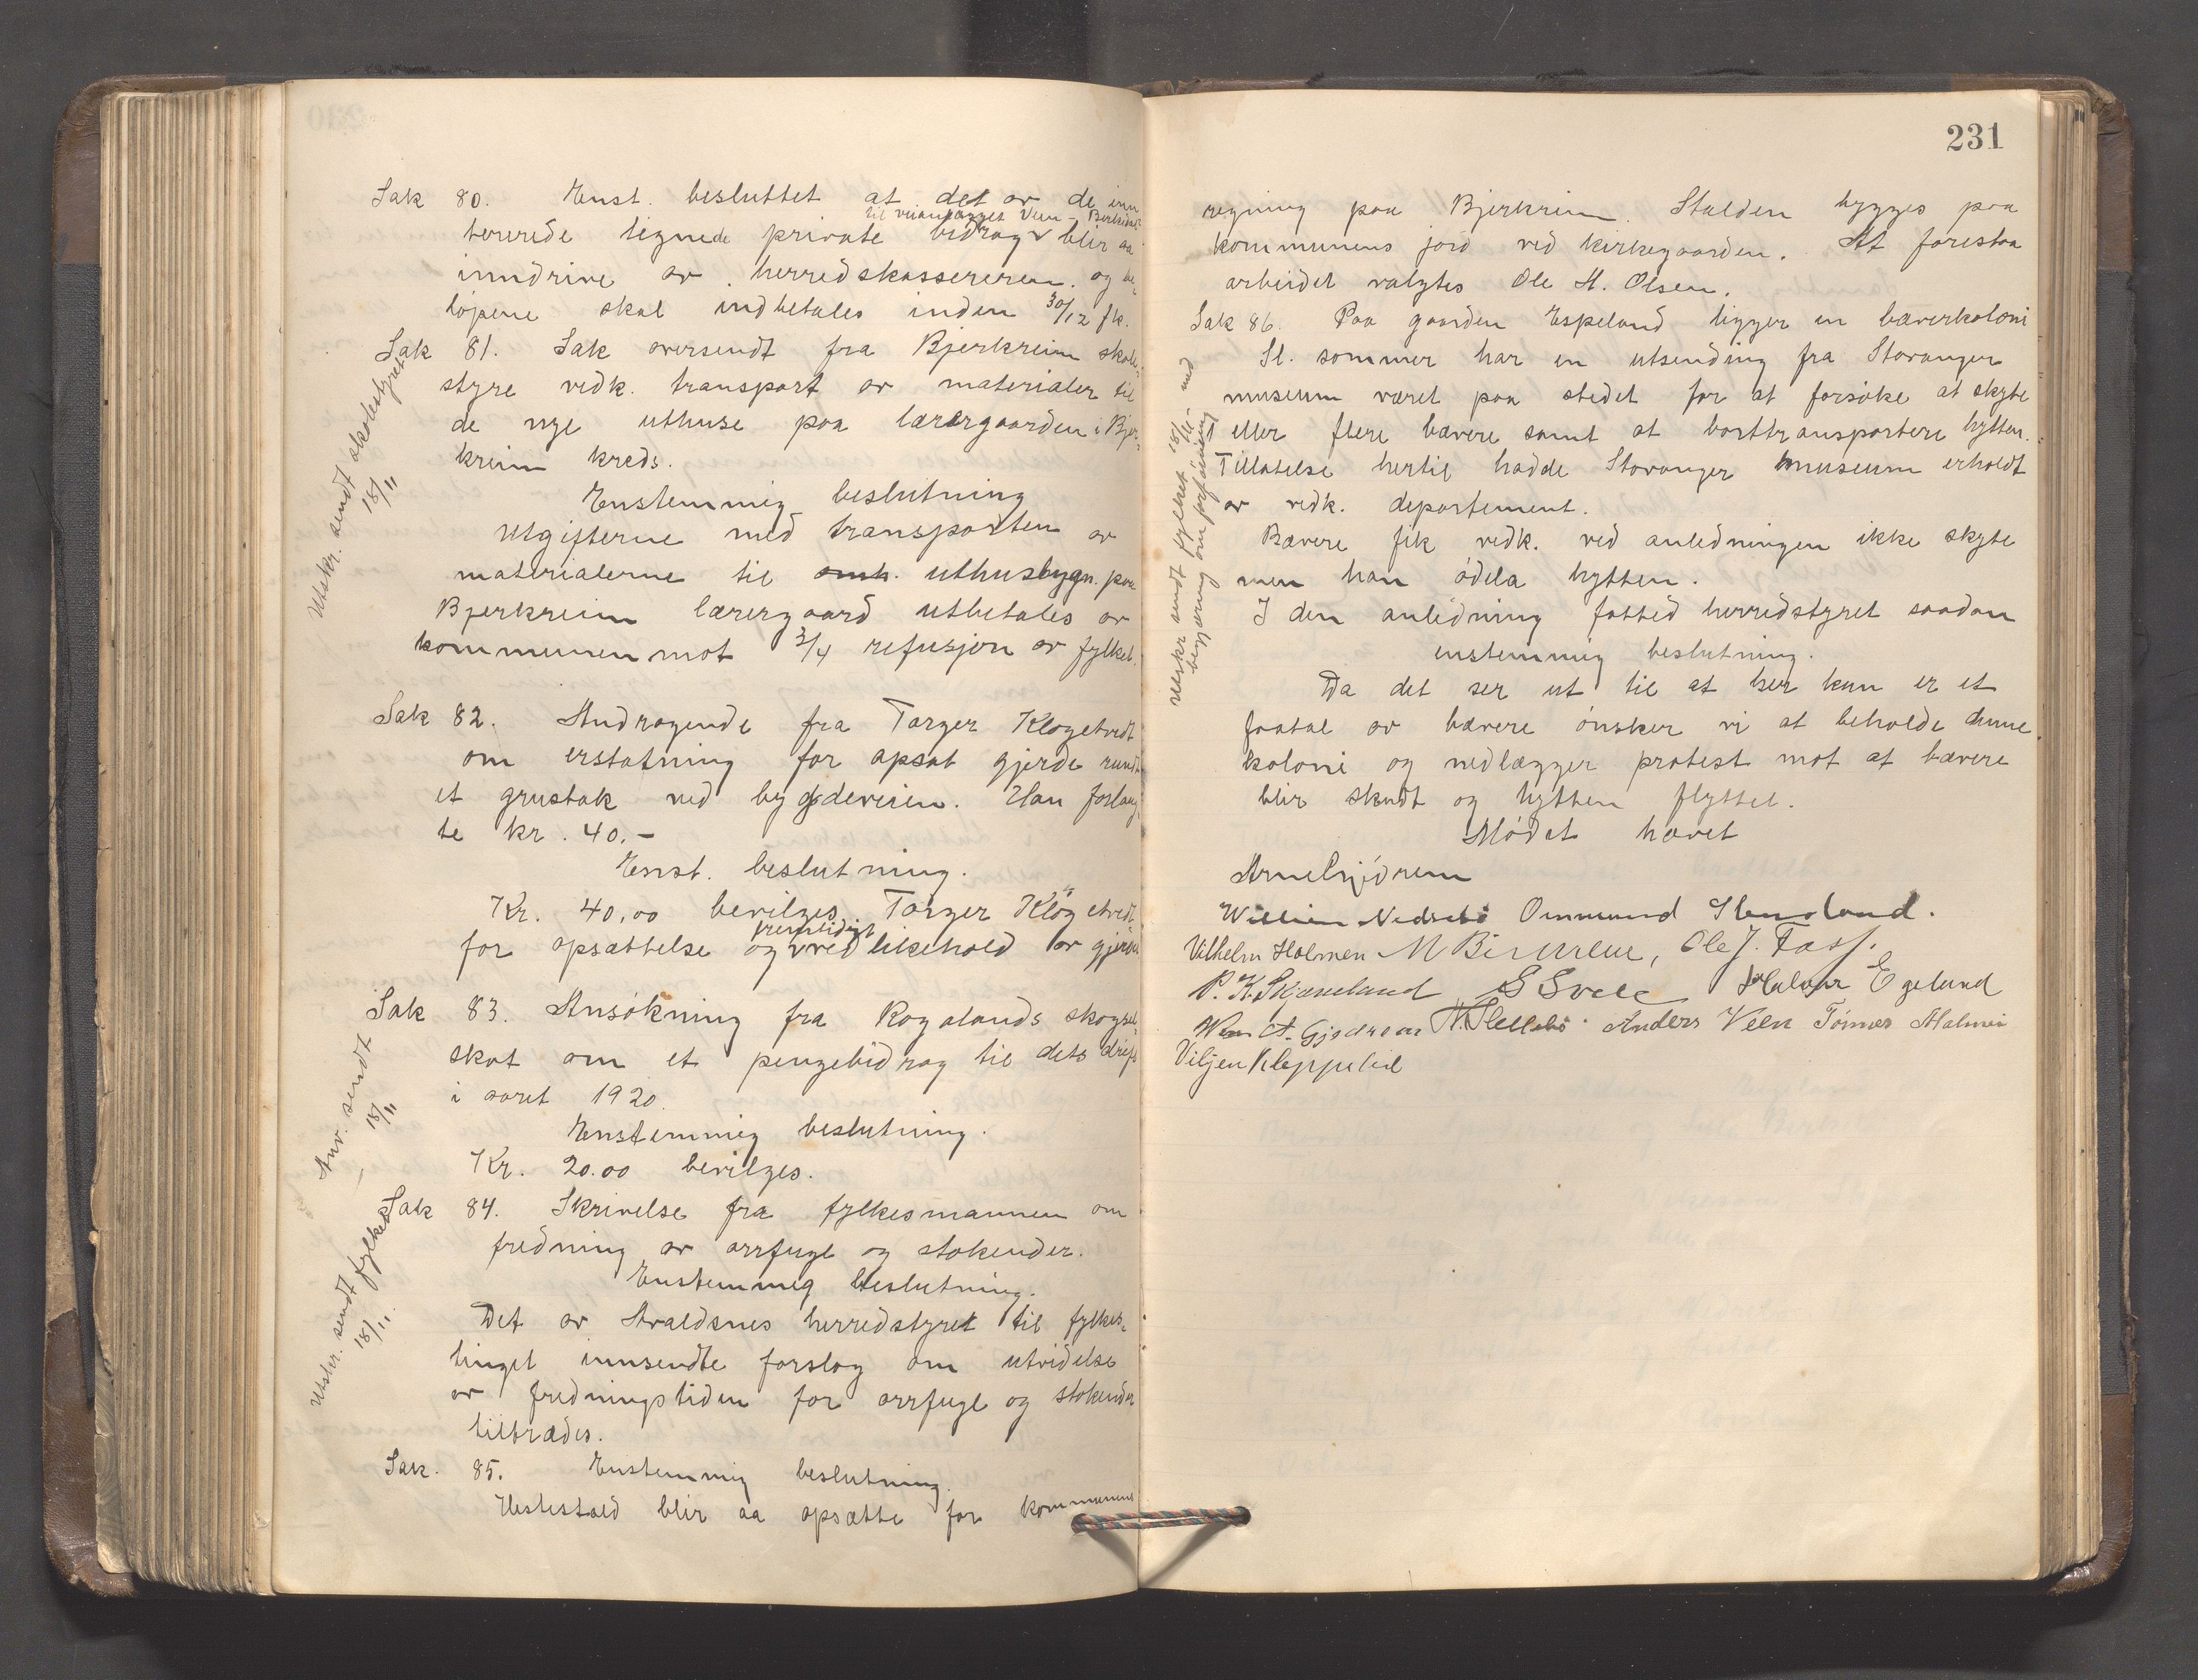 Sak 80. Enst. besluttet at det av de inn
til veianlægget Veen - Berkedal
tererede lignede private bidrag blir aa
inndrive av herredskassereren og be-
løpene skal indbetales inden 30/12 fk.
Sak 81. Sak oversendt fra Bjerkreim skole-
styre vedk. transport av materialer til
de nye uthuse paa lærergaarden i Bjer-
kreim kreds.
Utskr. sendt skolestyret
18/11
Enstemmig beslutning
Utgifterne med transporten av
materialerne til uthusbygn. paa
Bjerkreim lærergaard utbetales av
kommunen mot 3/4 refusjon av fylket.
Sak 82. Andragende fra Torger Kløgetvedt
om erstatning for opsat gjerde rundt
et grustak ved bygdeveien. Han forlang-
te kr. 40.-
Enst. beslutning.
Kr. 40,00 bevilges Torger Kløgetvedt
fremtidigt
for opsættelse og vedlikehold av gjerde
Sak 83. Ansøkning fra Rogalands skogsel-
skat om et pengebidrag til dets drift
i aaret 1920.
Anv. sendt
18/11
Enstemmig beslutning.
Kr. 20.00 bevilges.
Sak 84. Skrivelse fra fylkesmannen om
fredning av orrfugl og stokender.
Enstemmig beslutning.
Utskr. sendt fylket
18/11.
Det av Avaldsnes herredstyret til fylkes-
tinget innsendte forslag om utvidelse
av fredningstiden for orrfugl og stokender
tiltrædes.
Sak. 85. Enstemmig beslutning.
Hestestald blir aa opsætte for kommunens
231
regning paa Bjerkreim. Stalden bygges paa
kommunens jord ved kirkegaarden. At forestaa
arbeidet valgtes Ole H. Olsen.
Sak 86. Paa gaarden Espeland ligger en bæverkoloni
Sl. sommer har en utsending fra Stavanger
museum været paa stedet for at forsøke at skyte
1 eller flere bævere samt at borttransportere hytten.
Tillatelse hertil hadde Stavanger museum erholdt
av vedk. departement.
Utskr sendt fylket 18/11 - med
begjæring om forføining
Bævere fik vedk. ved anledningen ikke skyte
men han ødela hytten.
I den anledning fatted herredstyret saadan
enstemmig beslutning.
Da det ser ut til at her kun er et
faatal av bævere ønsker vi at beholde denne
koloni og nedlægger protest mot at bævere
blir skudt og hytten flyttet.
Mødet hævet
William Nedrebø Ommund Hengland.
Vilhelm Holmen M Birkrem, Ole J. Fass.
P. K. Skjæveland S Svele Halvor Egelund
A. Gjedrem N. Hellebø. Anders Veen Tønnes Malmei
Viljen Kleppelid